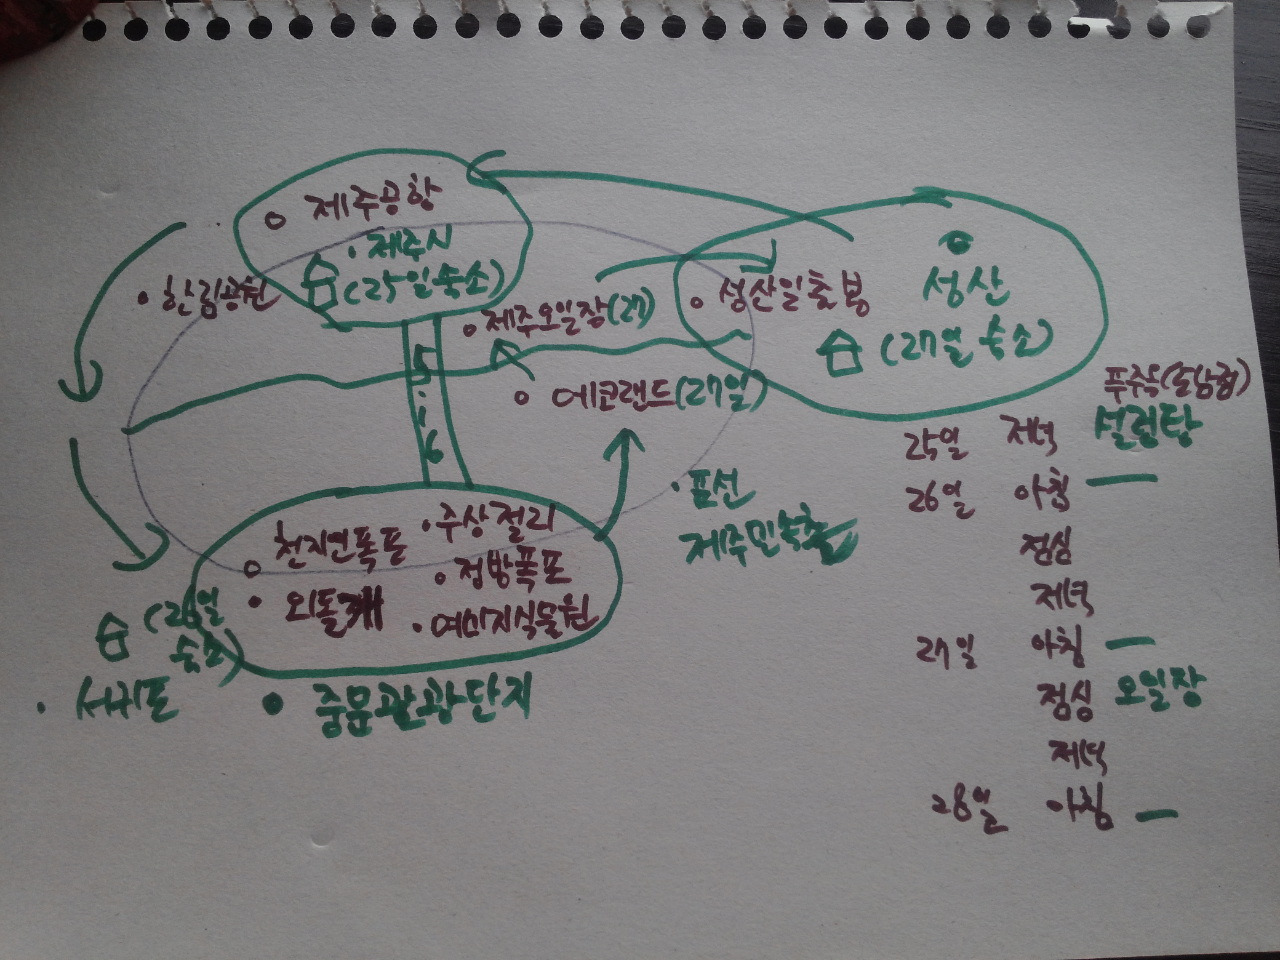 제주공항
제주시
(25일 숙소)
한림공원
제주오일장(27)
성산일출봉
성산
(27일 숙소)
에코랜드(27일)
5.16
표선
제주민속촌
천지연폭포
주상절리
정방폭포
외돌개
여미지식물원
(26일
숙소)
서귀포
중문관광단지
25일 저녁 설렁탕
26일 아침 —
점심
저녁
27일 아침 —
점심 오일장
저녁
28일 아침 —